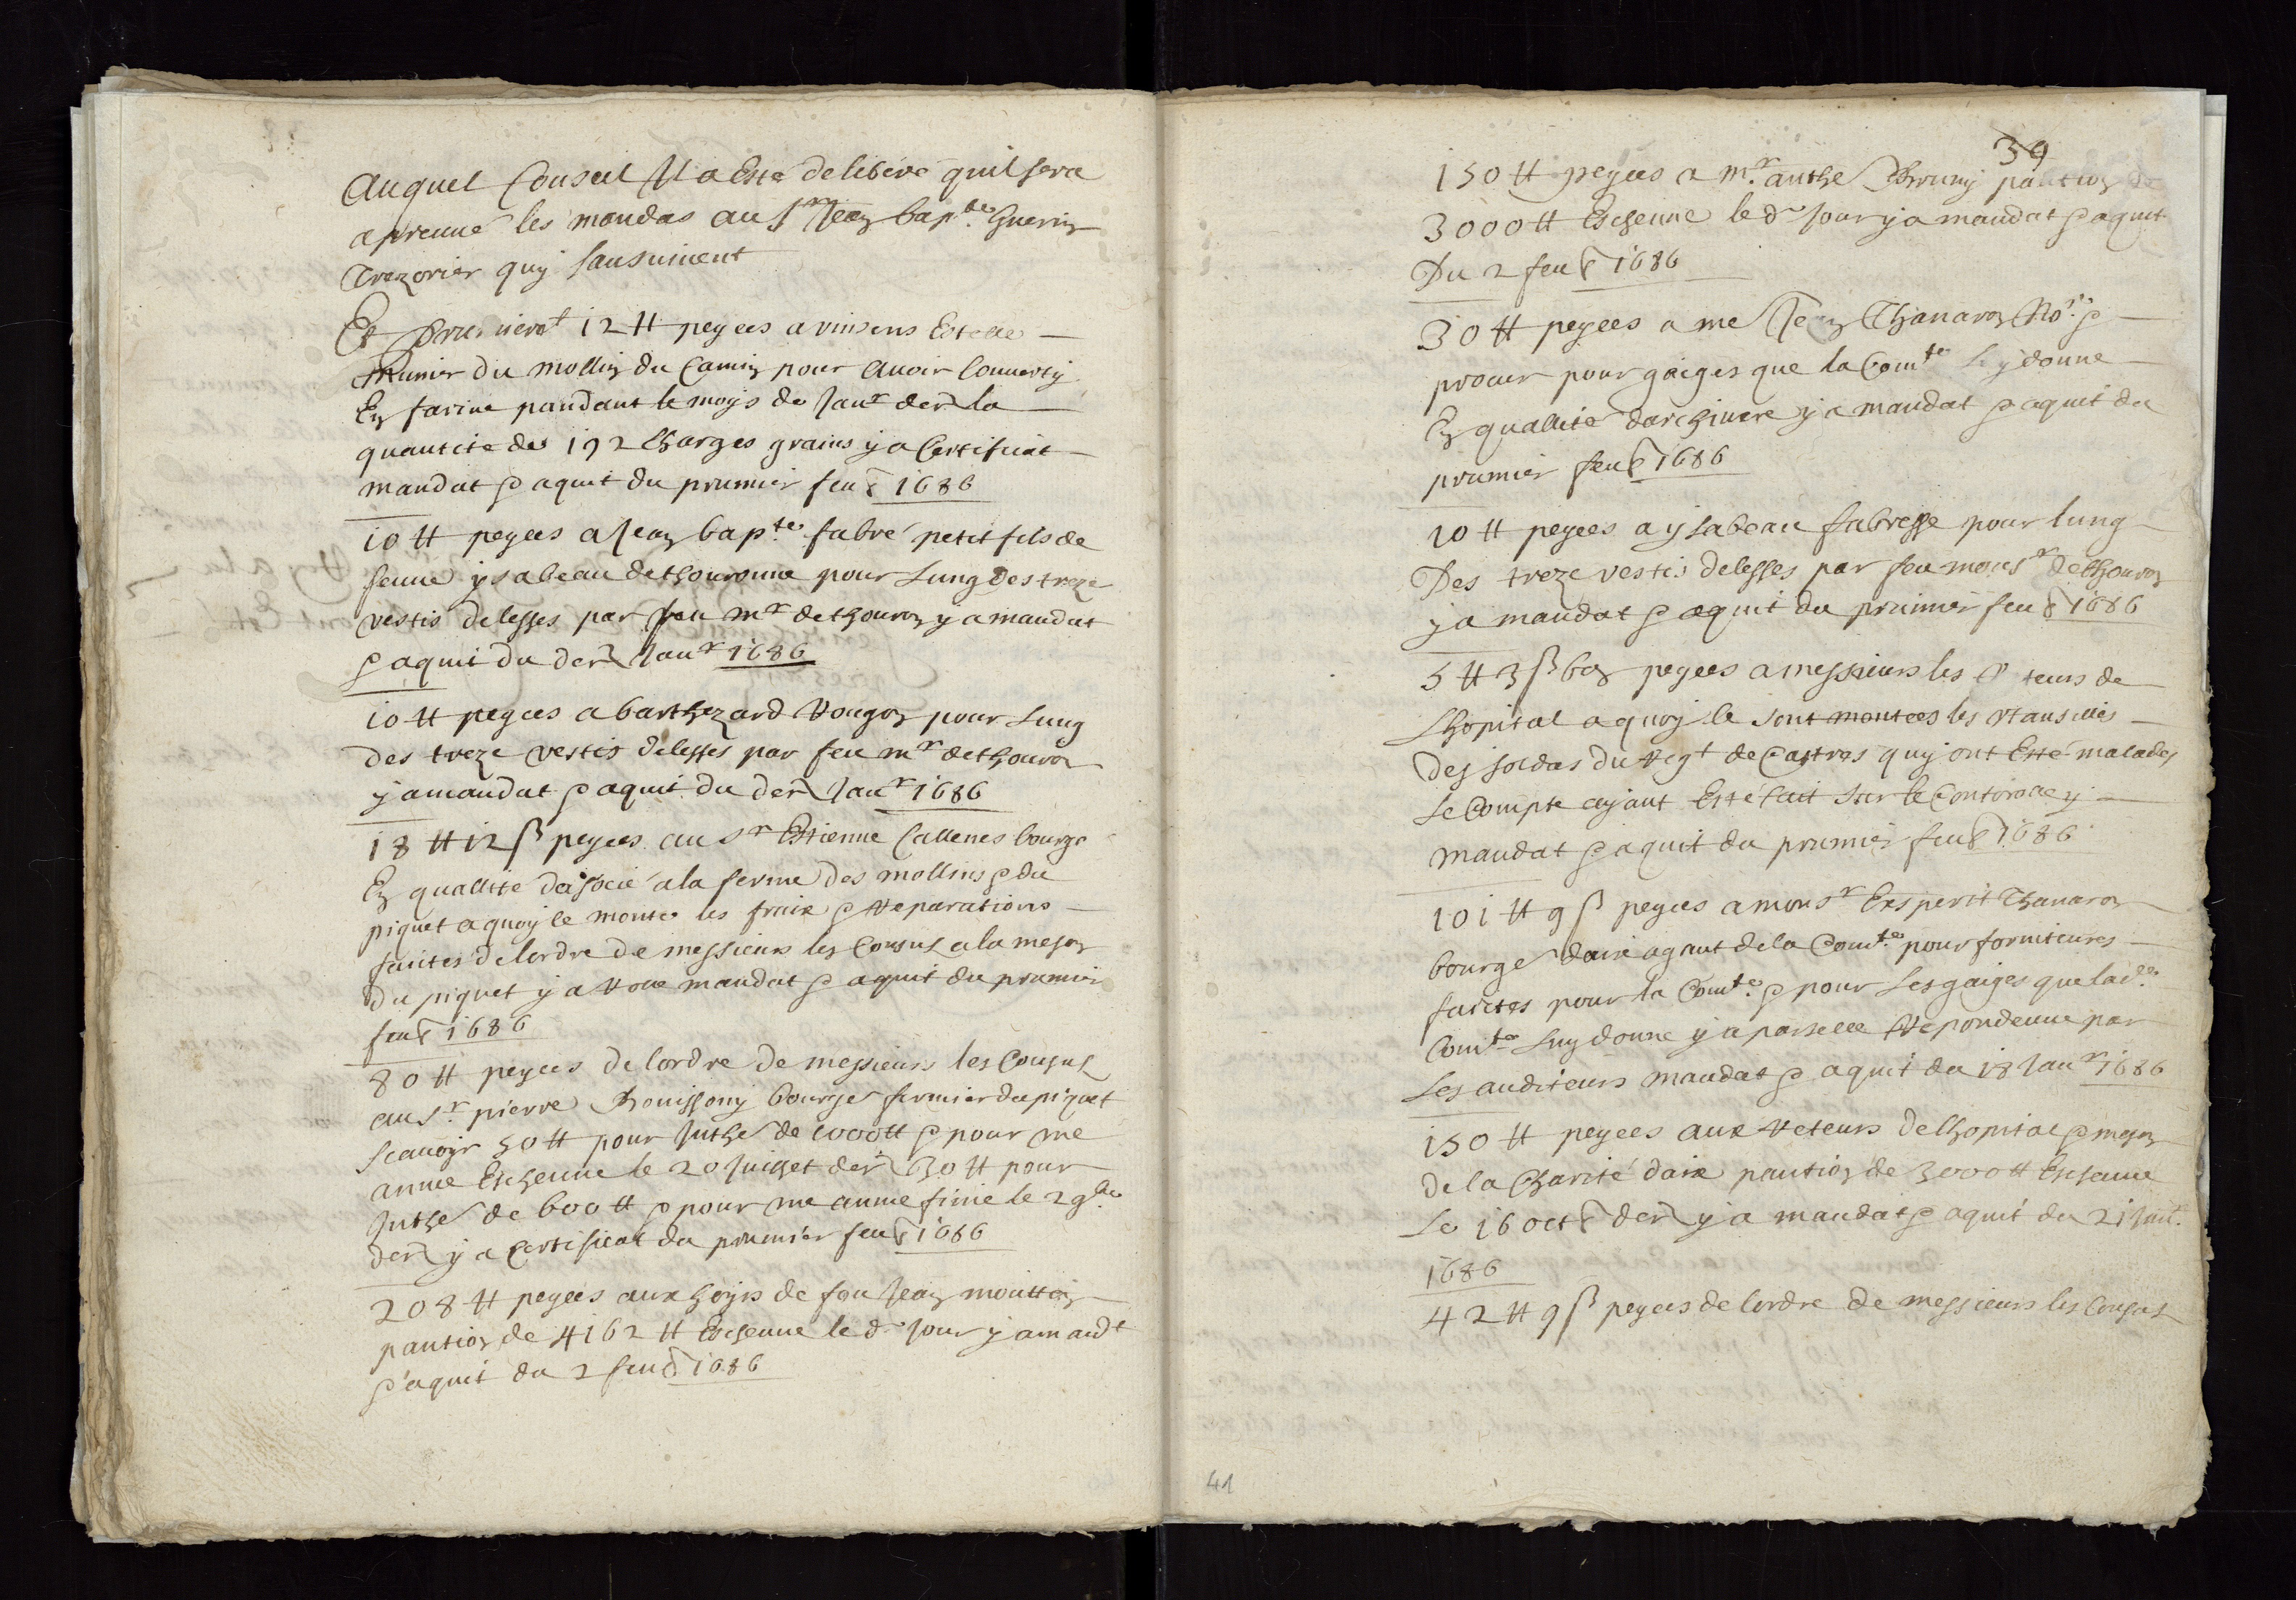 Auquel Conseil Il a Esté delibéré quil sera
apreuué les mandas au Sr Jean bapte. Guerin
Trezorier quy sansuiuent
Et Prumieremt 12 tt peyees a vinsens Estelle
Munier du mollin du Camin pour auoir Conuerty
En farine pandant le moys de Janr der la
quantité de 192 Charges grains y a Certificat
mandat & aquit du prumier feur 1686
10 tt peyees a Jean bapte. fabre petit fils de
feuue ysabeau dethouronne pour Lung des treze
vestis delesses par feu mr dethouron y a mandat
& aquit du der Janr 1686
10 tt peyees a barthezard Hougon pour Lung
des treze vestis delesses par feu mr dethouron
y a mandat & aquit du der Janr 1686
18 tt 12 ß peyees au Sr Estienne Callenes bourge
En quallité dasocié a la ferme des mollins & du
piquet a quoy ce monte les fraix & Reparations
faites de lordre de messieurs les Consuls a la meson
du piquet y a Rolle mandat & aquit du prumier
feur 1686
80 tt peyees de lordre de messieurs les Consuls
au Sr. pierre Bouissony bourge fermier du piquet
Scauoyr 50 tt pour Juthe de 1000 tt & pour vne
annee Escheue le 20 Juillet der 30 tt pour
Juthe de 600 tt & pour vne annee finie le 2 9bre
der y a Certificat du prumier feur 1686
208 tt peyees aux hoyrs de feu Jean moutton
pantion de 4162 tt Escheuue le d. Jour y a mandt
& aquit du 2 feur 1686
39
150 tt peyees a mr. anthe Bruny pantion de
3000 tt Escheuue le d. Jour y a mandat & aquit
Du 2 feur 1686
30 tt peyees a me Jean Thanaron Nore. &
procur pour gaiges que la Comte luy donne
En quallité darchiuere y a mandat & aquit du
prumier feur 1686
10 tt peyees a ysabeau fabresse pour lung
Des treze vestis delesses par feu monsr dethouron
y a mandat & aquit du prumier feur 1686
5 tt 3 ß 6 d peyees a messieurs les teurs de
Lhopital a quoy se sont montees les Vtansilles
des soldas du Regt de Castres quy ont Esté malades
Le Compte ayant Esté fait sur le Controlle y
mandat & aquit du prumier feur 1686
101 tt 9 ß peyees a monsr Exsperit Thanaron
bourge daix agant de la Comte. pour fornitures
faictes pour la Comte. & pour Ses gaiges que lade.
Comte luy donne y a parselle Repondeuue par
Les auditeurs mandat & aquit du 18 Janr 1686
150 tt peyees aux Reteurs de lhopital & meson
de la Charité daix pantion de 3000 tt Escheuue
Le 16 octr der y a mandat & aquit du 21 Janr.
1686
42 tt 9 ß peyees de lordre de messieurs les Consuls
41